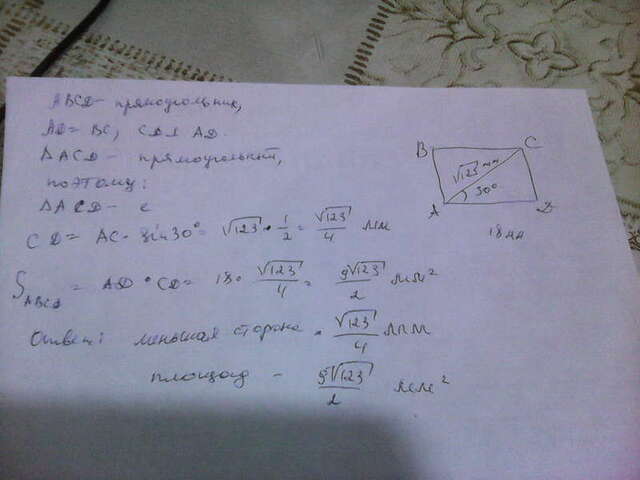 ABCD - прямоугольник,
AD = BC, CD ⊥ AD.
ΔACD - прямоугольный,
поэтому:
ΔACD - с
CD = AC · sin30° = √123 · 1/2 = √123/4 мм
S ABCD = AD · CD = 18 · √123/4 = 9√123/2 мм²
Ответ: меньшая сторона = √123/4 мм
площадь - 9√123/2 мм²
B C
√123 мм
30°
A D
18 мм